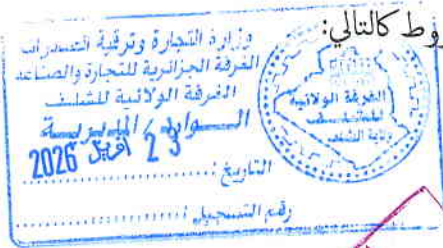 وط كالتالي:
وزارة التجارة وترقية الصادرات
الغرفة الجزائرية للتجارة والصناعة
الغرفة الولائية للشلف
الـــوارد / المديريـــة
23 أفريل 2026
التاريخ :
رقم التسجيل :
الغرفة الولائية
للشلف
ولاية الشلف